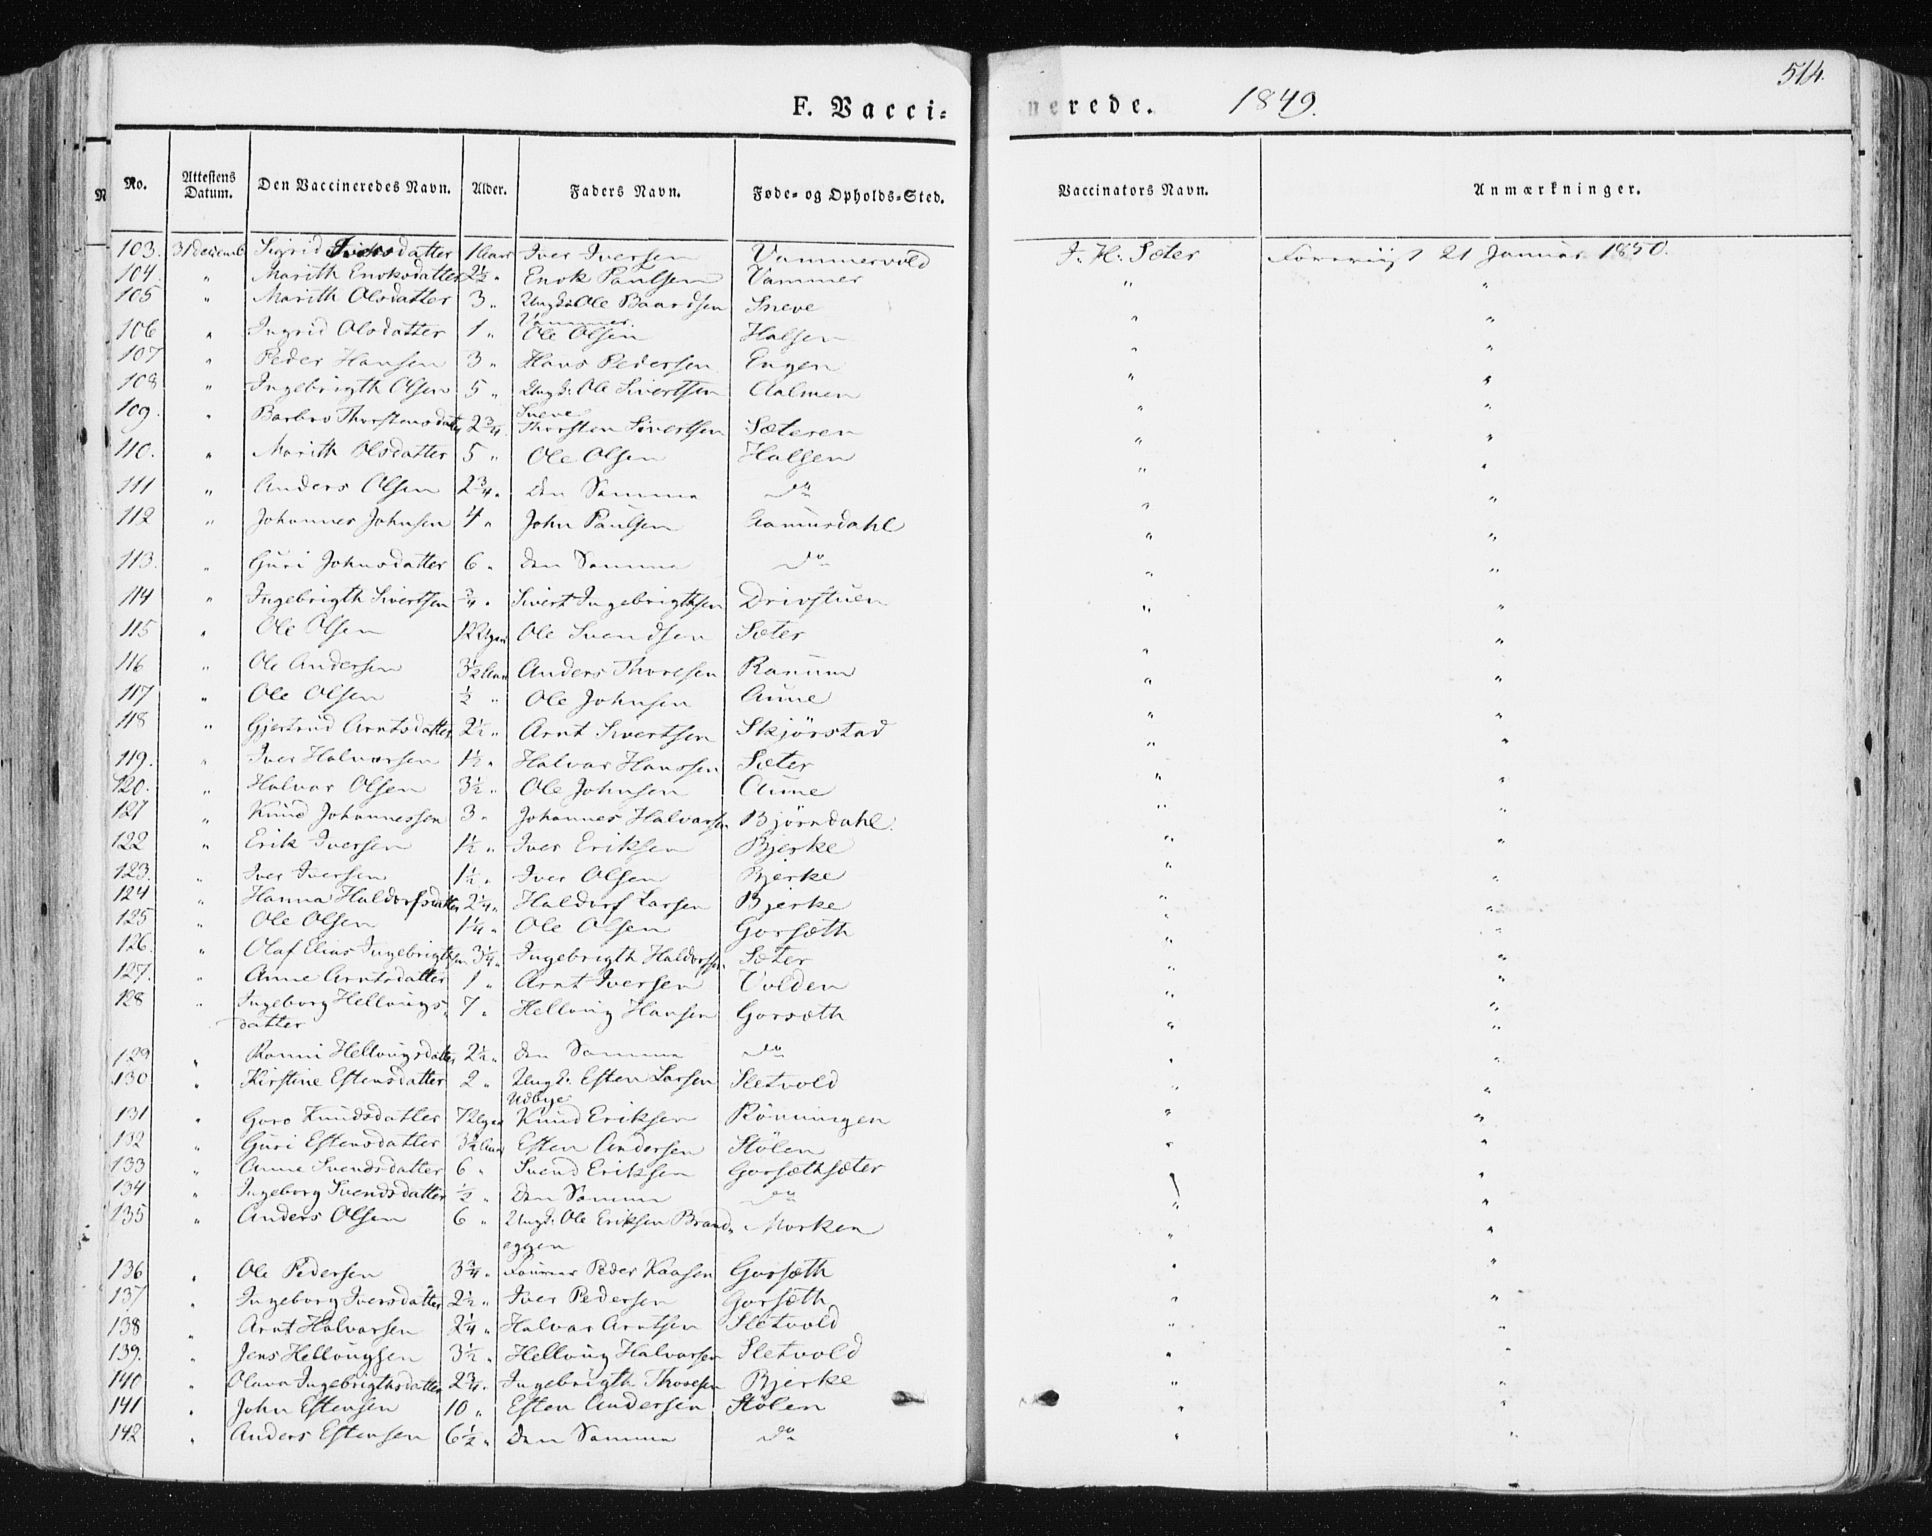 514.
F. Vacci=
nerede. 1849.
No. Attestens Datum. Den Vaccineredes Navn. Alder. Faders Navn. Føde= og Opholds=Sted. Vaccinators Navn. Anmærkninger.
103. 31 decemb. Sigrid Iversdatter 1 Aar Iver Iversen Vammervold J. H. Sæter 21 Januar 1850.
104. " Marith Enoksdatter 2½ " Enok Paulsen Vammer " "
105 " Marith Olsdatter 3 " Ungk. Ole Baardsen Sneve " "
Vammer.
106 " Ingrid Olsdatter 1 " Ole Olsen Halsen " "
107 " Peder Hansen 3 " Hans Pedersen Engen " "
108 " Ingebrigth Olsen 5 " Ungk. Ole Sivertsen Aalmen " "
Sneve
109. " Barbro Thorstensdatter 2¾ " Thorsten Sivertsen Sæteren " "
110. " Marith Olsdatter 5 " Ole Olsen Halsen " "
111 " Anders Olsen 2¾ " den Samme do " "
112 " Johannes Johnsen 4 " John Paulsen " "
113. " Guri Johnsdatter 6 " den Samme do " "
114 " Ingebrigth Sivertsen ¾ " Sivert Ingebrigthsen Drivstuen " "
115 " Ole Olsen 12 Uger Ole Svendsen Sæter " "
116 " Ole Andersen 3½ Aar Anders Thoresen Ranum " "
117 " Ole Olsen ½ " Ole Johnsen Aune " "
118 " Gjertrud Arntsdatter 2½ " Arnt Sivertsen Skjörstad " "
119. " Iver Halvorsen 1½ " Halvor Hanssen Sæter " "
120. " Halvor Olsen 3½ " Ole Johnsen Aune " "
121 " Knud Johannessen 3 " Johannes Halvorsen Björndahl. " "
122 " Erik Iversen 1½ " Iver Eriksen Bjerke " "
123. " Iver Iversen 1½ " Iver Olsen Bjerke " "
124 " Hanna Haldorsdatter 2¼ " Haldor Larsen Bjerke " "
125 " Ole Olsen 1¼ " Ole Olsen Gorsæth " "
126. " Olaf Elias Ingebrigthsen 3¼ " Ingebrigth Haldorsen Sæter " "
127. " Anne Arntsdatter 1 " Arnt Iversen Volden " "
128 " Ingeborg Hellvigs- 7 " Hellvig Hansen Gorsæth " "
datter
129 " Ranni Hellvigsdatter 2½ " den Samme do " "
130 " Kirstine Estensdatter 2 " Ungk. Esten Larsen Sletvold " "
Udbye
131 " Goro Knudsdatter 7 Uger Knud Eriksen Rönningen " "
132 " Guri Estensdatter 3½ Aar Esten Andersen Stölen " "
133 " Anne Svendsdatter 6 " Svend Eriksen Gorsæthsæter " "
134 " Ingeborg Svendsdatter ½ " den Samme do " "
135 " Anders Olsen 6 " Ungk. Ole Eriksen Brand- Morken " "
eggen
136 " Ole Pedersen 3¾ " Peder Gorsæth " "
137 " Ingeborg Iversdatter 2½ " Iver Pedersen Gorsæth " "
138 " Arnt Halvorsen 2¼ " Halvor Arntsen Sletvold " "
139. " Jens Hellvigsen 3½ " Hellvig Halvorsen Sletvold " "
140 " Olava Ingebrigthsdatter 2¾ " Ingebrigth Thoresen Bjerke " "
141 " John Estensen 10 " Esten Andersen Stölen " "
142 " Anders Estensen 6½ " den Samme do " "